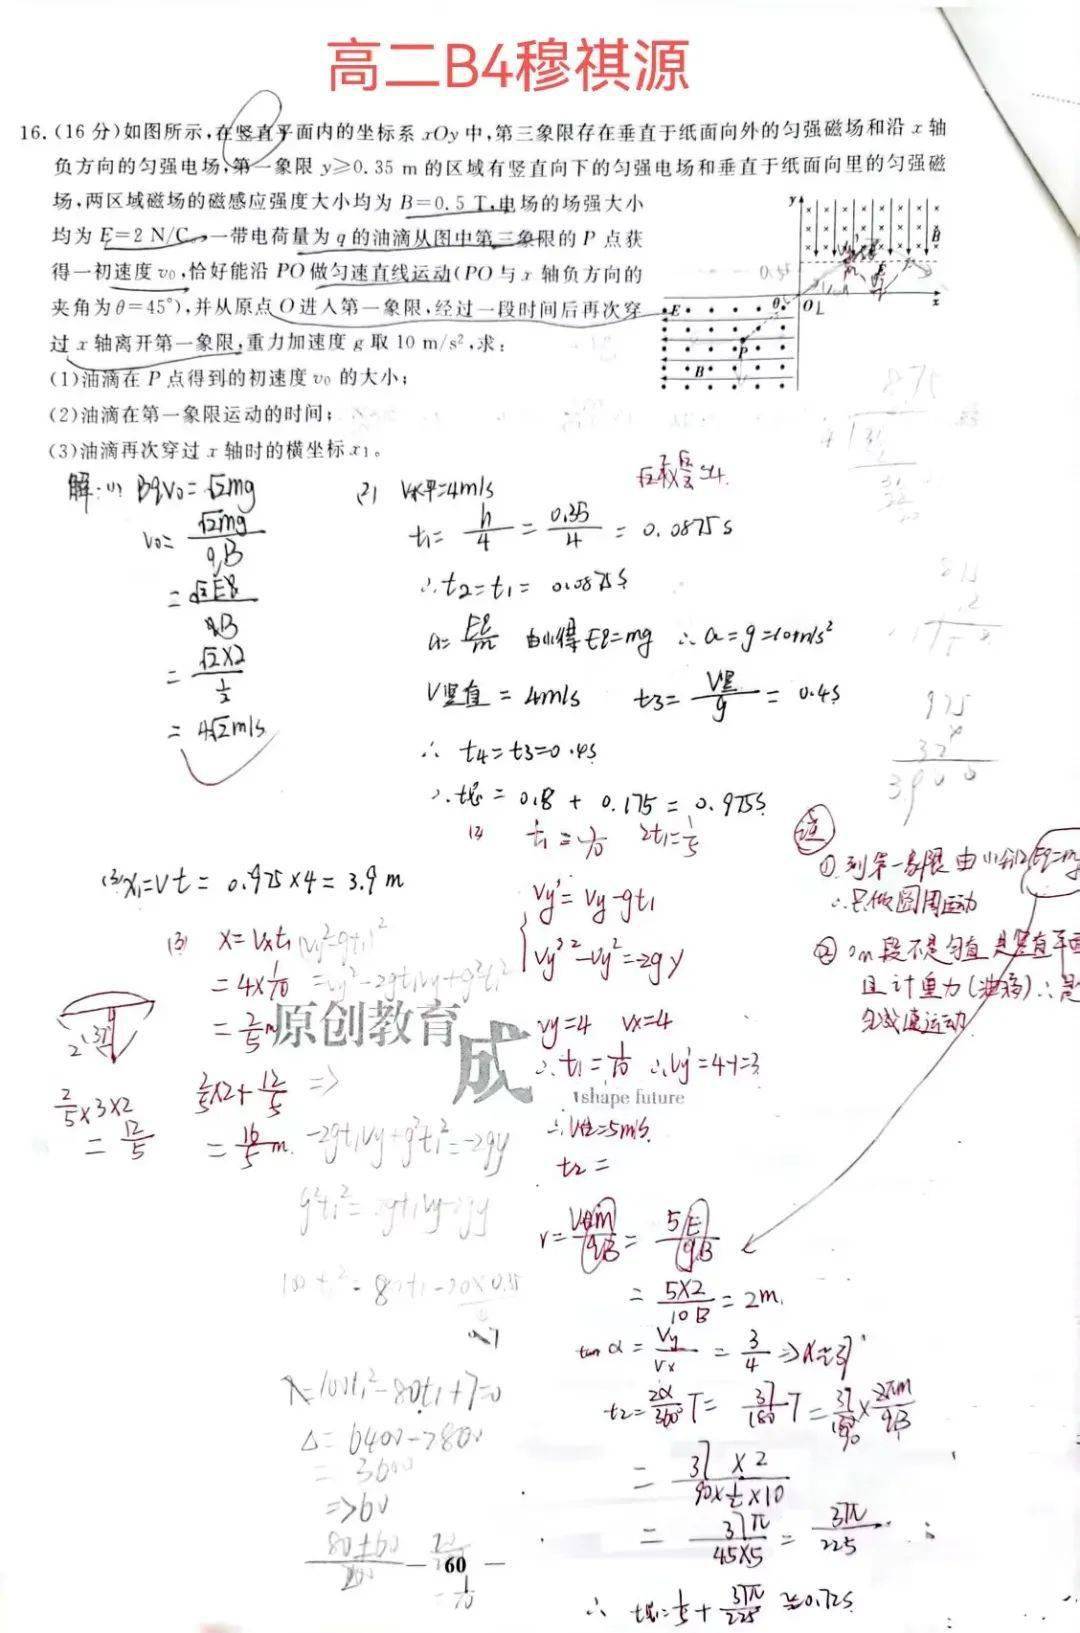 高二B4穆祺源
16.(16分)如图所示,在竖直平面内的坐标系 xOy 中,第三象限存在垂直于纸面向外的匀强磁场和沿 x 轴
负方向的匀强电场,第一象限 y≥0.35 m 的区域有竖直向下的匀强电场和垂直于纸面向里的匀强磁
场,两区域磁场的磁感应强度大小均为 B=0.5 T,电场的场强大小
均为 E=2 N/C。一带电荷量为 q 的油滴从图中第三象限的 P 点获
得一初速度 v₀,恰好能沿 PO 做匀速直线运动(PO 与 x 轴负方向的
夹角为 θ=45°),并从原点 O 进入第一象限,经过一段时间后再次穿
过 x 轴离开第一象限,重力加速度 g 取 10 m/s²,求:
(1)油滴在 P 点得到的初速度 v₀ 的大小;
(2)油滴在第一象限运动的时间;
(3)油滴再次穿过 x 轴时的横坐标 x₁。
y
B
E
x
O
θ
E
P
B
解:(1) BqV₀=√2mg
V₀=√2mg/qB
=√2Eq/qB
=√2×2/½
=4√2m/s
(2) V水平=4m/s
t₁=h/4=0.35/4=0.0875s
∴t₂=t₁=0.0875s
a=Eq/m 由(1)得Eq=mg ∴a=g=10m/s²
V竖直=4m/s t₃=V竖/g=0.4s
∴ t₄=t₃=0.4s
∴t总=0.8+0.175=0.975s
(3)x₁=Vt=0.975×4=3.9m
(2) t₁=1/10 2t₁=1/5
Vy'=Vy-gt₁
Vy'²-Vy²=-2gy
Vy=4 Vx=4
∴t₁=1/10 ∴Vy'=4-1=3
∴V合=5m/s
t₂=
r=V合m/qB=5E/gB
=5×2/10B=2m
tanα=Vy/Vx=3/4⇒α=37°
t₂=2α/360°T=37/180T=37/180×2πm/qB
=37×2/90×½×10
=37π/45×5=37π/225
∴t总=1/5+37π/225≈0.72s
(3) x=Vxt₁
=4×1/10
=2/5m
2/5×2+12/5
=16/5m
2
37°
2/5×3×2
=12/5
①到第一象限由(1)知Eq=mg
∴只做圆周运动
且计重力(油滴)∴是
匀减速运动
-2gt₁Vy+g²t₁²=-2gy
100t₁²-80t₁+7=0
Δ=6400-2800
=3600
⇒60
原创教育
成
shape future
60